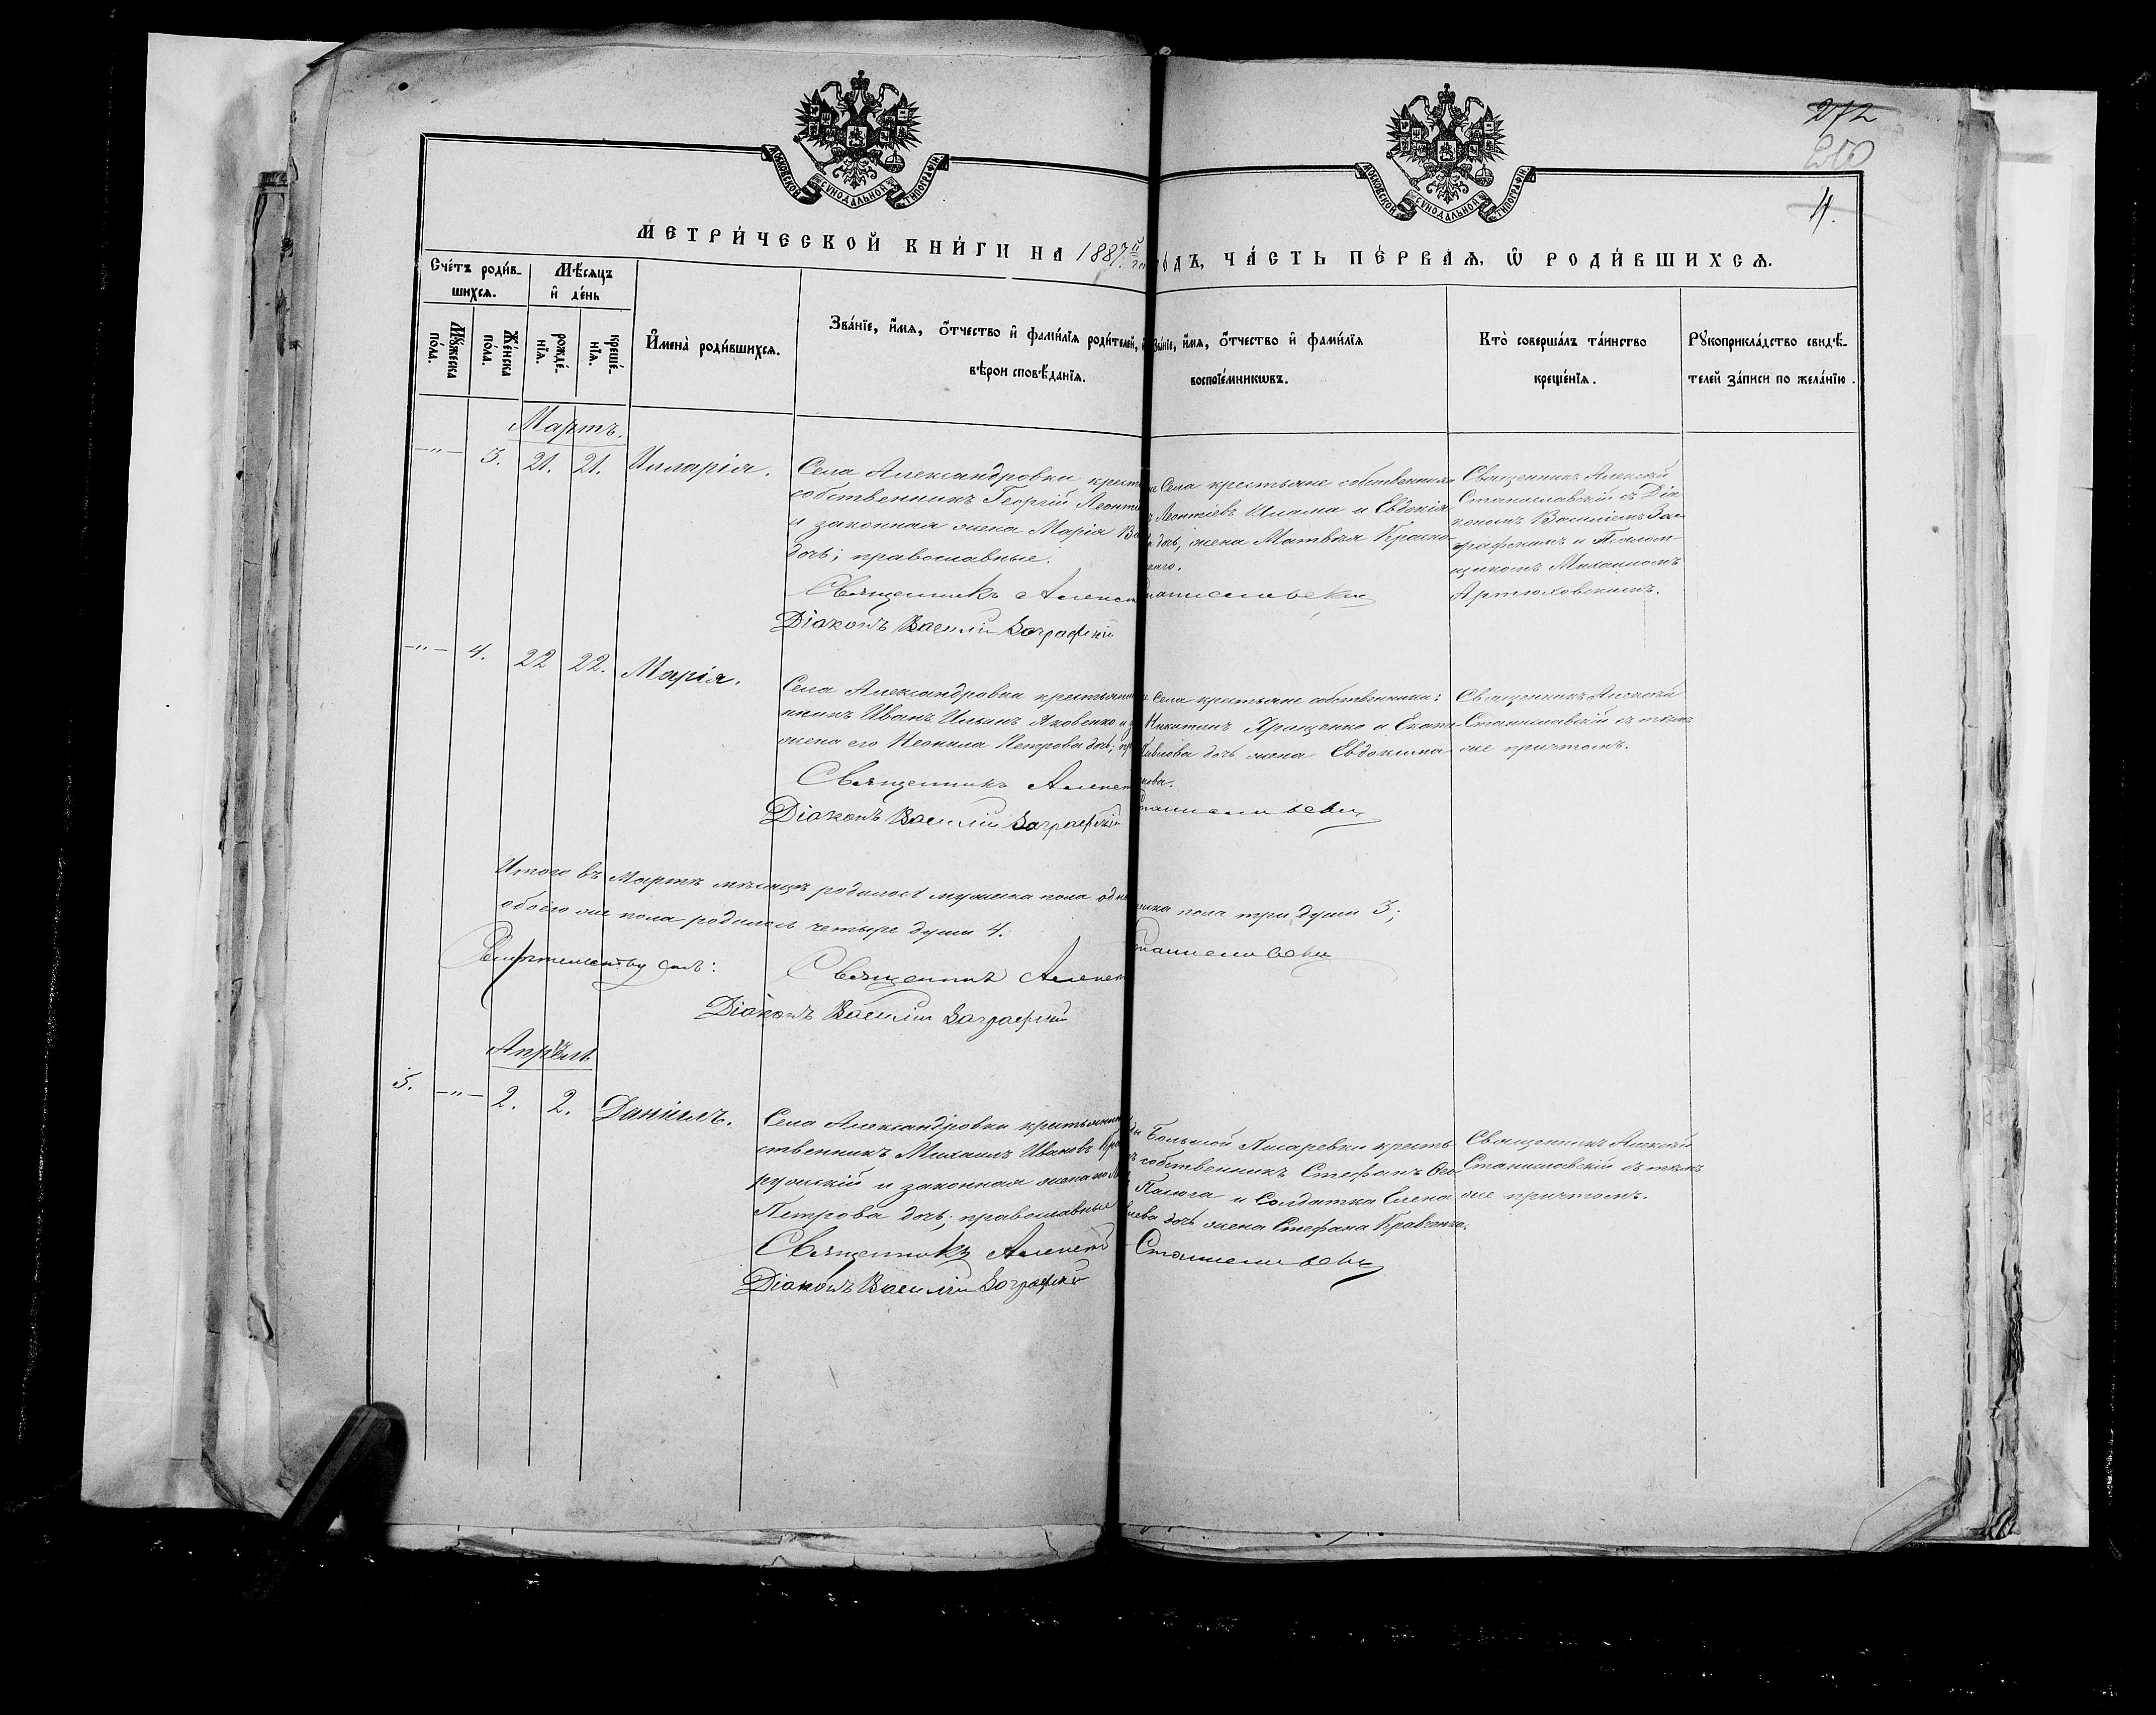 272
4.
МОСКОВСКОЙ СУНОДАЛЬНОЙ ТИПОГРАФІИ
МОСКОВСКОЙ СУНОДАЛЬНОЙ ТИПОГРАФІИ
МЕТРИ́ЧЕСКОЙ КНИ́ГИ НА 1887й
го́дъ, ЧА́СТЬ ПЕ́РВАЯ, Ѡ РОДИ́ВШИХСЯ.
Сче́тъ роди́в-
шихся.
Мѣ́сяцъ
и҆ де́нь
Мꙋ́жеска
по́ла.
Же́нска
по́ла.
рожде́-
нїя.
креще́-
нїя.
И҆мена̀ роди́вшихся.
Зва́нїе, и҆́мя, ѻ҆́тчество и҆ фами́лїя роди́телей, и҆
вѣроисповѣ́данїя.
Зва́нїе, и҆́мя, ѻ҆́тчество и҆ фами́лїя
воспрїе́мниковъ.
Кто̀ соверша́лъ та́инство
креще́нїя.
Рꙋкоприкла́дство свидѣ́-
телей за́писи по жела́нїю.
Мартъ.
-"- 3. 21. 21. Илларія.
Села Александровки крест
собственникъ Георгій Леонті
и законная жена Марія Ва
дочь; православные.
Села крестьяне собственники
Леонтіевъ Шлама и Евдокія
дочь, жена Матвѣя Красно
Священникъ Алексѣй
Станиславскій съ Діа
кономъ Василіемъ За
графскимъ и Псалом-
щикомъ Михаиломъ
Артюховскимъ.
Священникъ Алексѣ
таниславскій
Діаконъ Василій Заграфскій
-"- 4. 22 22. Марія.
Села Александровки крестьянин
никъ Иванъ Ильинъ Яковенко и з
жена его Неонила Петрова дочь; пр
села крестьяне собственники:
Никитинъ Грищенко и Екате
Павлова дочь жена Евдокима
Священникъ Алексѣй
Станиславскій съ тѣмъ
же причтомъ.
Священникъ Алексѣ
таниславскій
Діаконъ Василій Заграфскій
Итого въ Мартѣ мѣсяцѣ родилось мужеска пола одна
женска пола три души 3;
обоего же пола родилось четыре души 4.
Свидѣтельствуемъ:
Священникъ Алексѣ
таниславскій
Діаконъ Василій Заграфскій
Апрѣль
5. -"- 2. 2. Даніилъ.
Села Александровки крестьянин
ственникъ Михаилъ Ивановъ Кра
и законная жена его
Петрова дочь; православные
Большой Писаревки кресть
собственникъ Стефанъ Ѳео
и Солдатка Елена
дочь жена Стефана Кравченко.
Священникъ Алексѣй
Станиславскій съ тѣмъ
же причтомъ.
Священникъ Алексѣй
Станиславскій
Діаконъ Василій Заграфскій